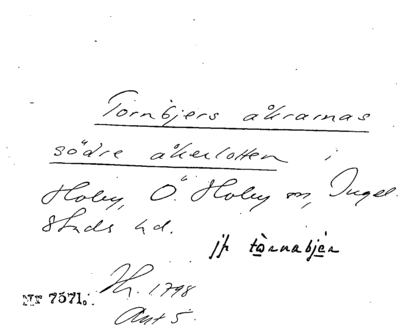 Tornbjers åkrarnas
södre åkerlotten i
Hoby, Ö. Hoby sn, Ingel-
stads hd.
jfr tòrnabjèr
Nr 7571.
Sk. 1798
Akt 5.